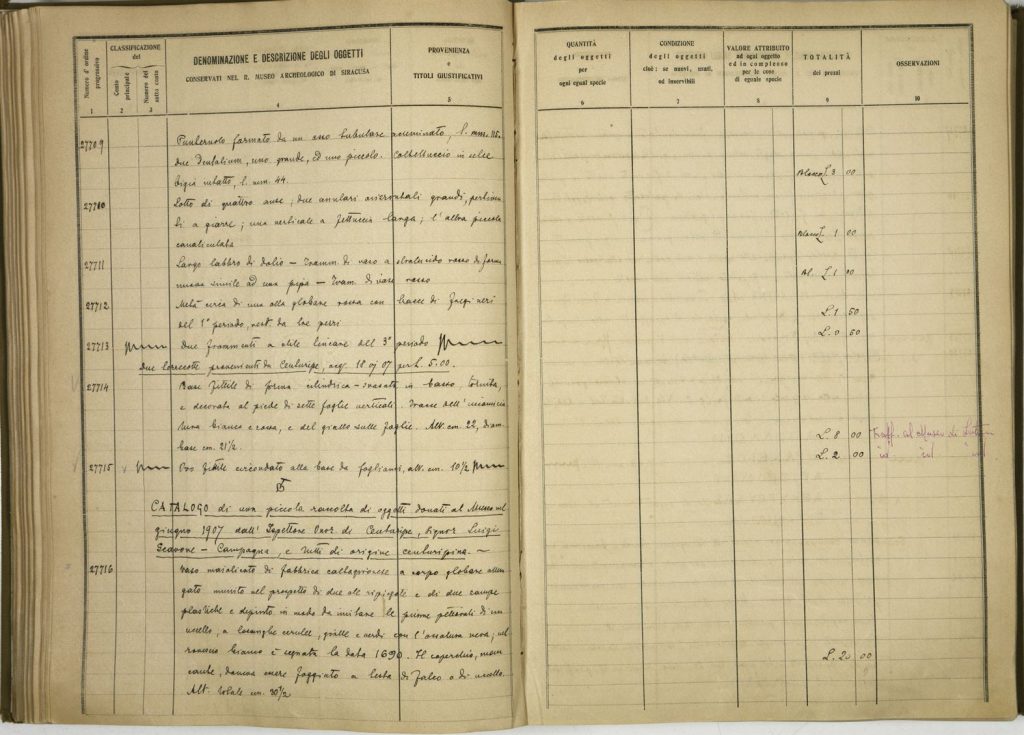 Numero d'ordine progressivo
CLASSIFICAZIONE
del
Conto principale
Numero del sotto conto
DENOMINAZIONE E DESCRIZIONE DEGLI OGGETTI
CONSERVATI NEL R. MUSEO ARCHEOLOGICO DI SIRACUSA
PROVENIENZA
e
TITOLI GIUSTIFICATIVI
1 2 3 4 5
27709 Punteruolo formato da un osso subulare acuminato, l. mm. 115.
due Dentalium, uno grande, ed uno piccolo. Coltelluccio in selce
bigia intatto, l. mm. 44.
27710 Lotto di quattro anse; due anulari orizzontali grandi, pertinen
ti a giarre; una verticale a fettuccia larga; l'altra piccola
canaliculata
27711 Largo labbro di dolio – Framm. di vaso a rosso di forma
simile ad una pipa – Fram. di vaso rosso
27712 Metà circa di una olla globare rossa con tracce di fregi neri
del 1° periodo, rest. da tre pezzi
27713 Due frammenti a stile lineare del 3° periodo
due terrecotte provenienti da Centuripe, acq. 18 9/ 07 per L. 5.00.
27714 Base fittile di forma cilindrica – svasata in basso, tornita,
e decorata al piede di sette foglie verticali. Tracce dell'incamicia
tura bianco e rosa, e del giallo sulle foglie. Alt. cm. 22, diam
base cm. 21½.
27715 Ovo fittile circondato alla base da fogliami, alt. cm. 10½
CATALOGO di una piccola raccolta di oggetti donati al Museo nel
giugno 1907 dall'Ispettore Onor. di Centuripe, Signor Luigi
Scavone – Campagna, e tutti di origine centuripina. –
27716 Vaso maiolicato di fabbrica caltagironese a corpo globare allun
gato munito nel prospetto di due ali ripiegate e di due zampe
plastiche e dipinto in modo da imitare le piume pettorali di un
uccello, a losanghe cerulee, gialle e verdi con l'ossatura nera; nel
rovescio bianco è segnata la data 1690. Il coperchio, man
cante, doveva essere foggiato a testa di falco o di uccello.
Alt. totale cm. 30½
QUANTITÀ
degli oggetti
per
ogni egual specie
CONDIZIONE
degli oggetti
cioè: se nuovi, usati,
od inservibili
VALORE ATTRIBUITO
ad ogni oggetto
ed in complesso
per le cose
di eguale specie
TOTALITÀ
dei prezzi
OSSERVAZIONI
6 7 8 9 10
L. 3 00
L. 1 00
L. 1 00
L. 1 50
L. 0 50
L. 8 00
L. 2 00 id id id
L. 20 00